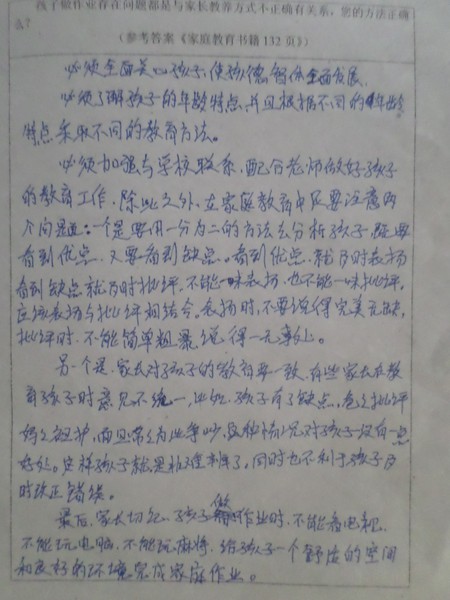 孩子做作业存在问题都是与家长教养方式不正确有关系，您的方法正确
么？
（参考答案《家庭教育书籍132页》）
必须全面关心孩子，使孩德智体全面发展.
必须了解孩子的年龄特点，并且根据不同的年龄
特点采取不同的教育方法。
必须加强与学校联系，配合老师做好孩子
的教育工作，除此之外，在家庭教育中还要注意两
个问题：一个是要用一分为二的方法去分析孩子，既要
看到优点，又要看到缺点。看到优点，就及时表扬
看到缺点就及时批评，不能一味表扬，也不能一味批评，
应该表扬与批评相结合，表扬时，不要说得完美无缺，
批评时，不能简单粗暴，说得一无事处。
另一个是，家长对孩子的教育要一致，有些家长在教
育孩子时意见不统一，比如，孩子有了缺点，爸爸批评
妈妈袒护，而且常为此争吵，这种情况对孩子没有一点
好处。这样孩子就是非理来了，同时也不利于孩子及
时改正错误。
最后，家长切记，孩子做作业时，不能看电视，
不能玩电脑，不能玩麻将，给孩子一个舒适的空间
和良好的环境完成家庭作业。